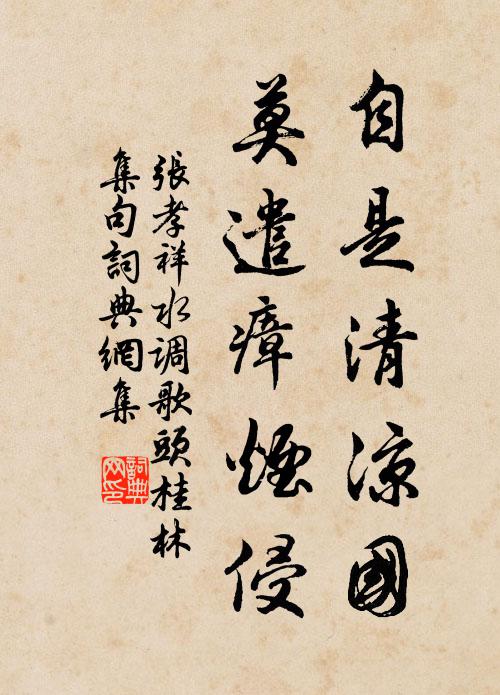 自是清涼國
莫遣瘴煙侵
張孝祥水调歌頭桂林
集句詞典網集
詞典網印